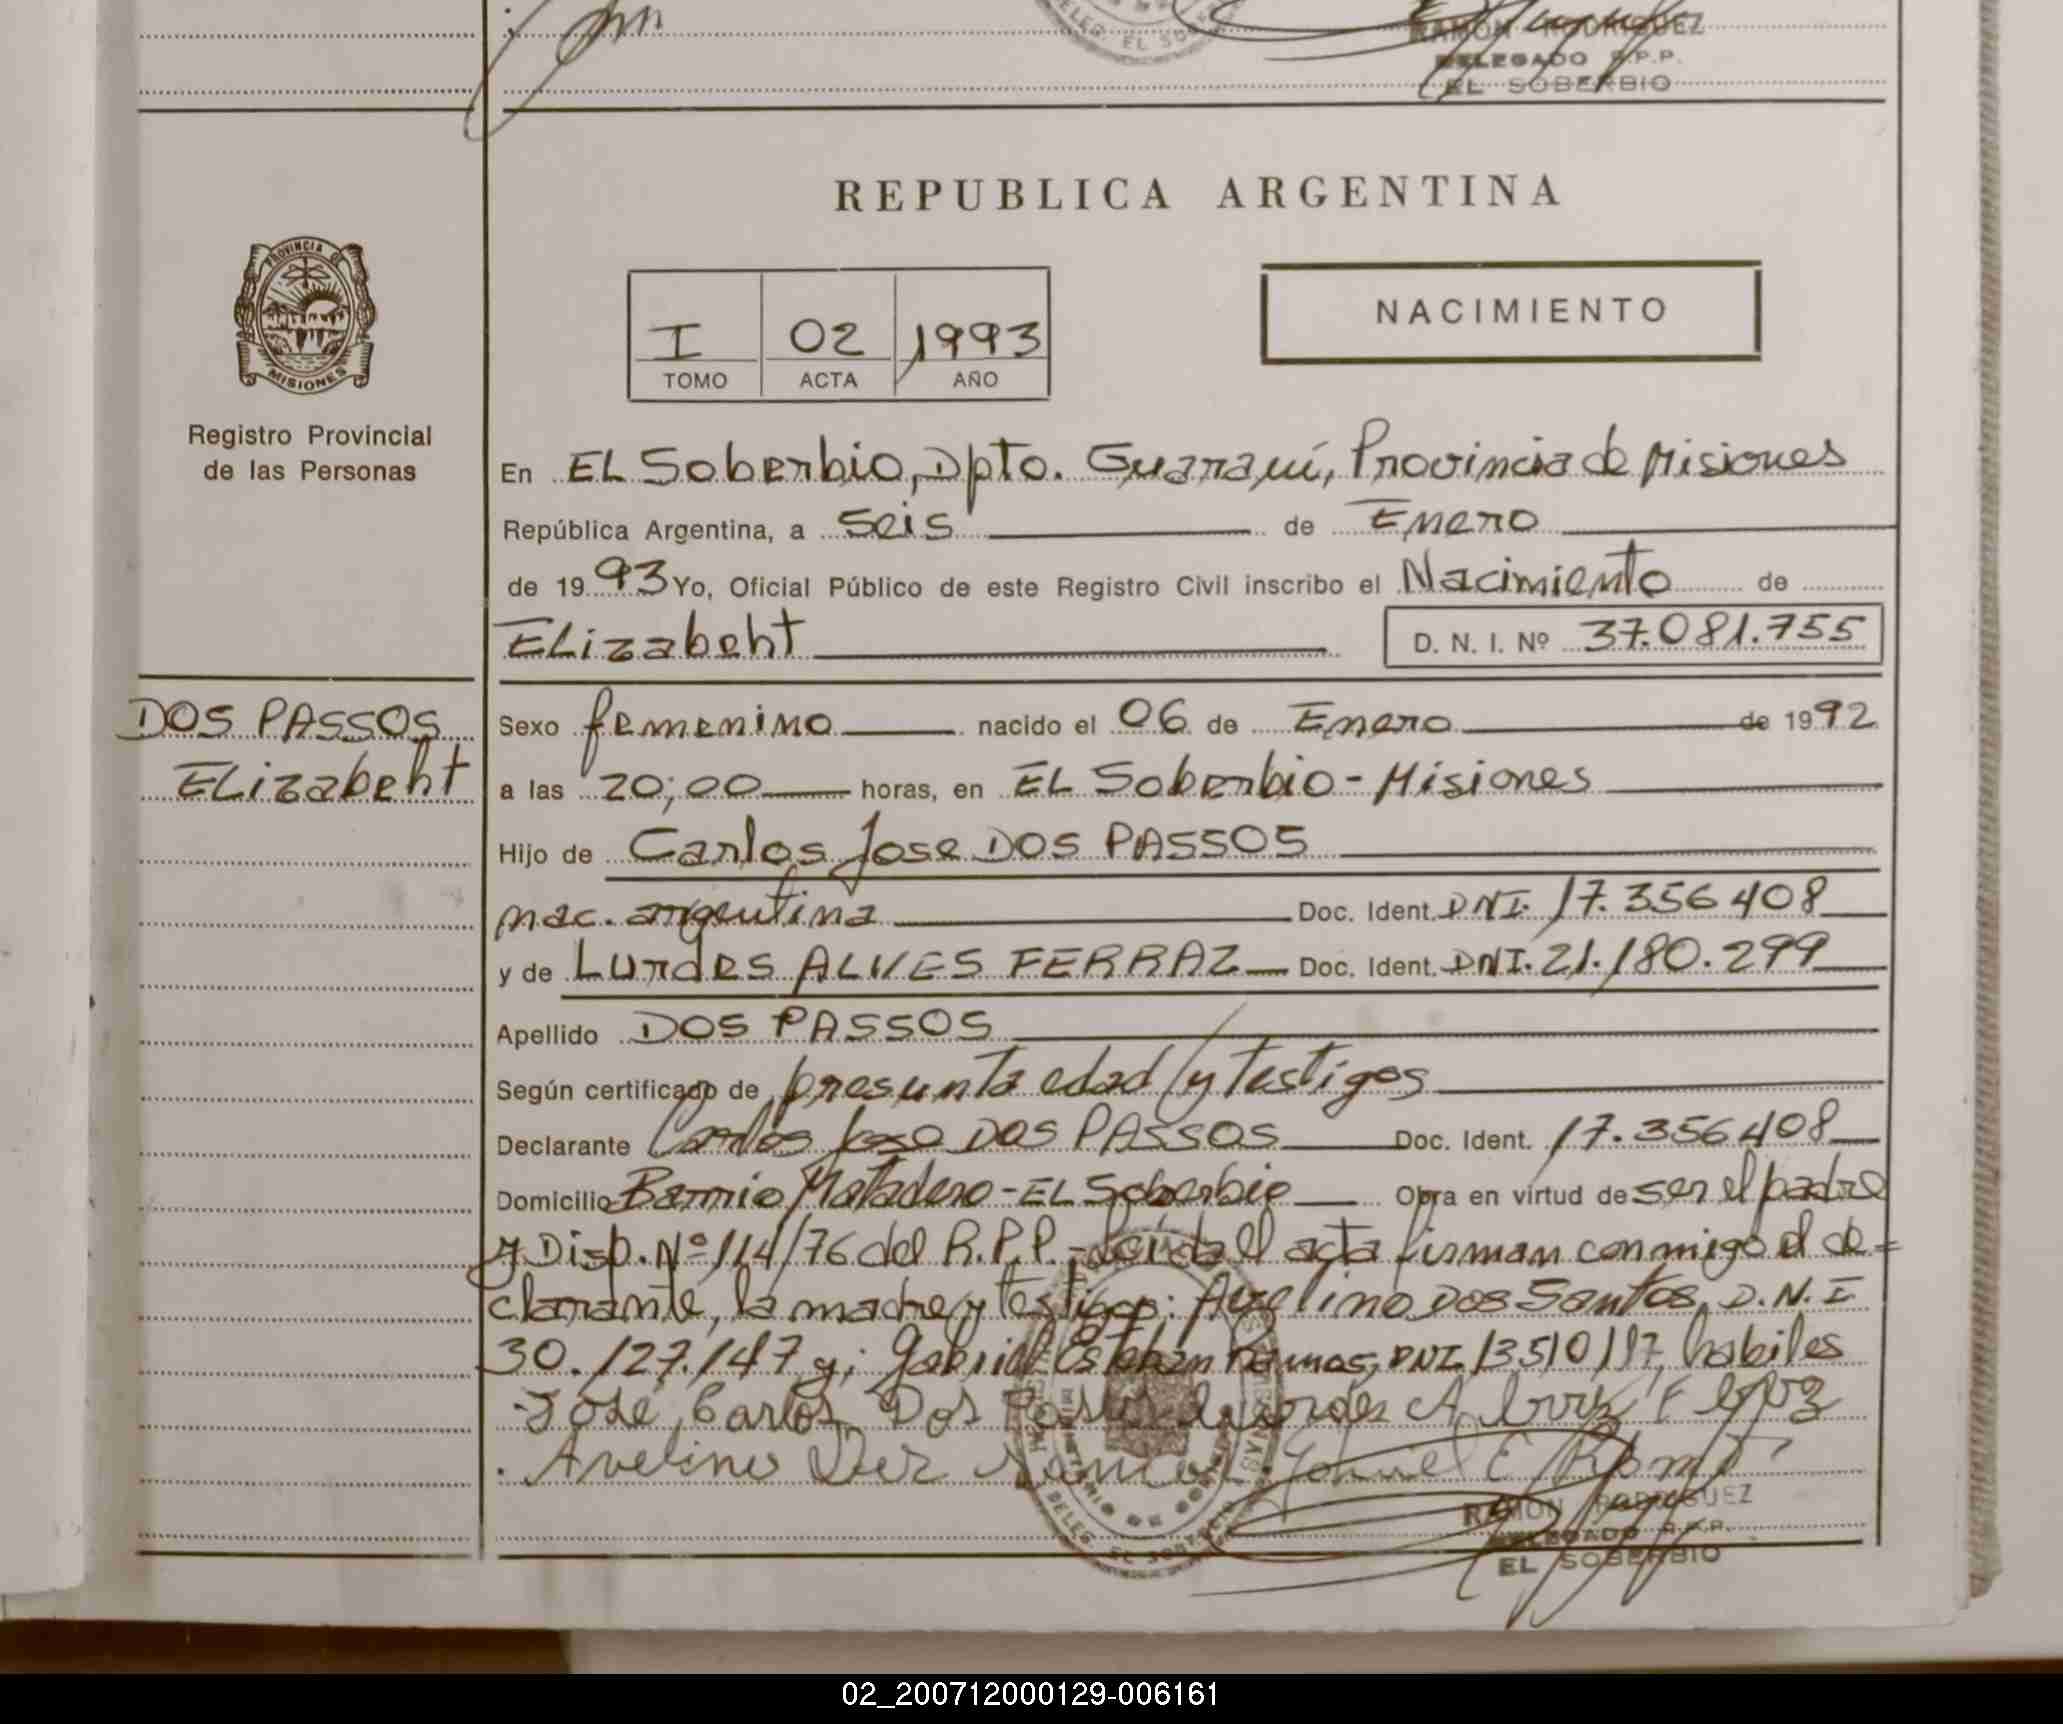 DELEG. EL SO
RAMON RODRIGUEZ
DELEGADO R.P.P.
EL SOBERBIO
REPUBLICA ARGENTINA
PROVINCIA DE
MISIONES
Registro Provincial
de las Personas
I 02 1993
TOMO ACTA AÑO
NACIMIENTO
En EL Soberbio, Dpto. Guaraní, Provincia de Misiones
República Argentina, a Seis de Enero
de 1993 Yo, Oficial Público de este Registro Civil inscribo el Nacimiento de
ELizabeht D. N. I. Nº 37.081.755
DOS PASSOS
ELizabeht
Sexo femenino nacido el 06 de Enero de 1992
a las 20;00 horas, en EL Soberbio - Misiones
Hijo de Carlos Jose DOS PASSOS
nac. argentina Doc. Ident. DNI. 17.356408
y de Lurdes ALVES FERRAZ Doc. Ident. DNI. 21.180.299
Apellido DOS PASSOS
Según certificado de presunta edad y testigos
Declarante Carlos Jose DOS PASSOS Doc. Ident. 17.356408
Domicilio Barrio Matadero - EL Soberbio Obra en virtud de ser el padre
y Disp. Nº 114/76 del R.P.P. - Leida el acta firman conmigo el de=
clarante, la madre y testigos: Avelino Dos Santos, D.N.I
30.127.147 y; Gabriel Esteban Ramos, DNI 13510117, habiles
José Carlos Dos Passos Lurdes
Avelino Dos
RAMON RODRIGUEZ
DELEGADO R.P.P.
EL SOBERBIO
DELEG. EL SOBERBIO
02_200712000129-006161